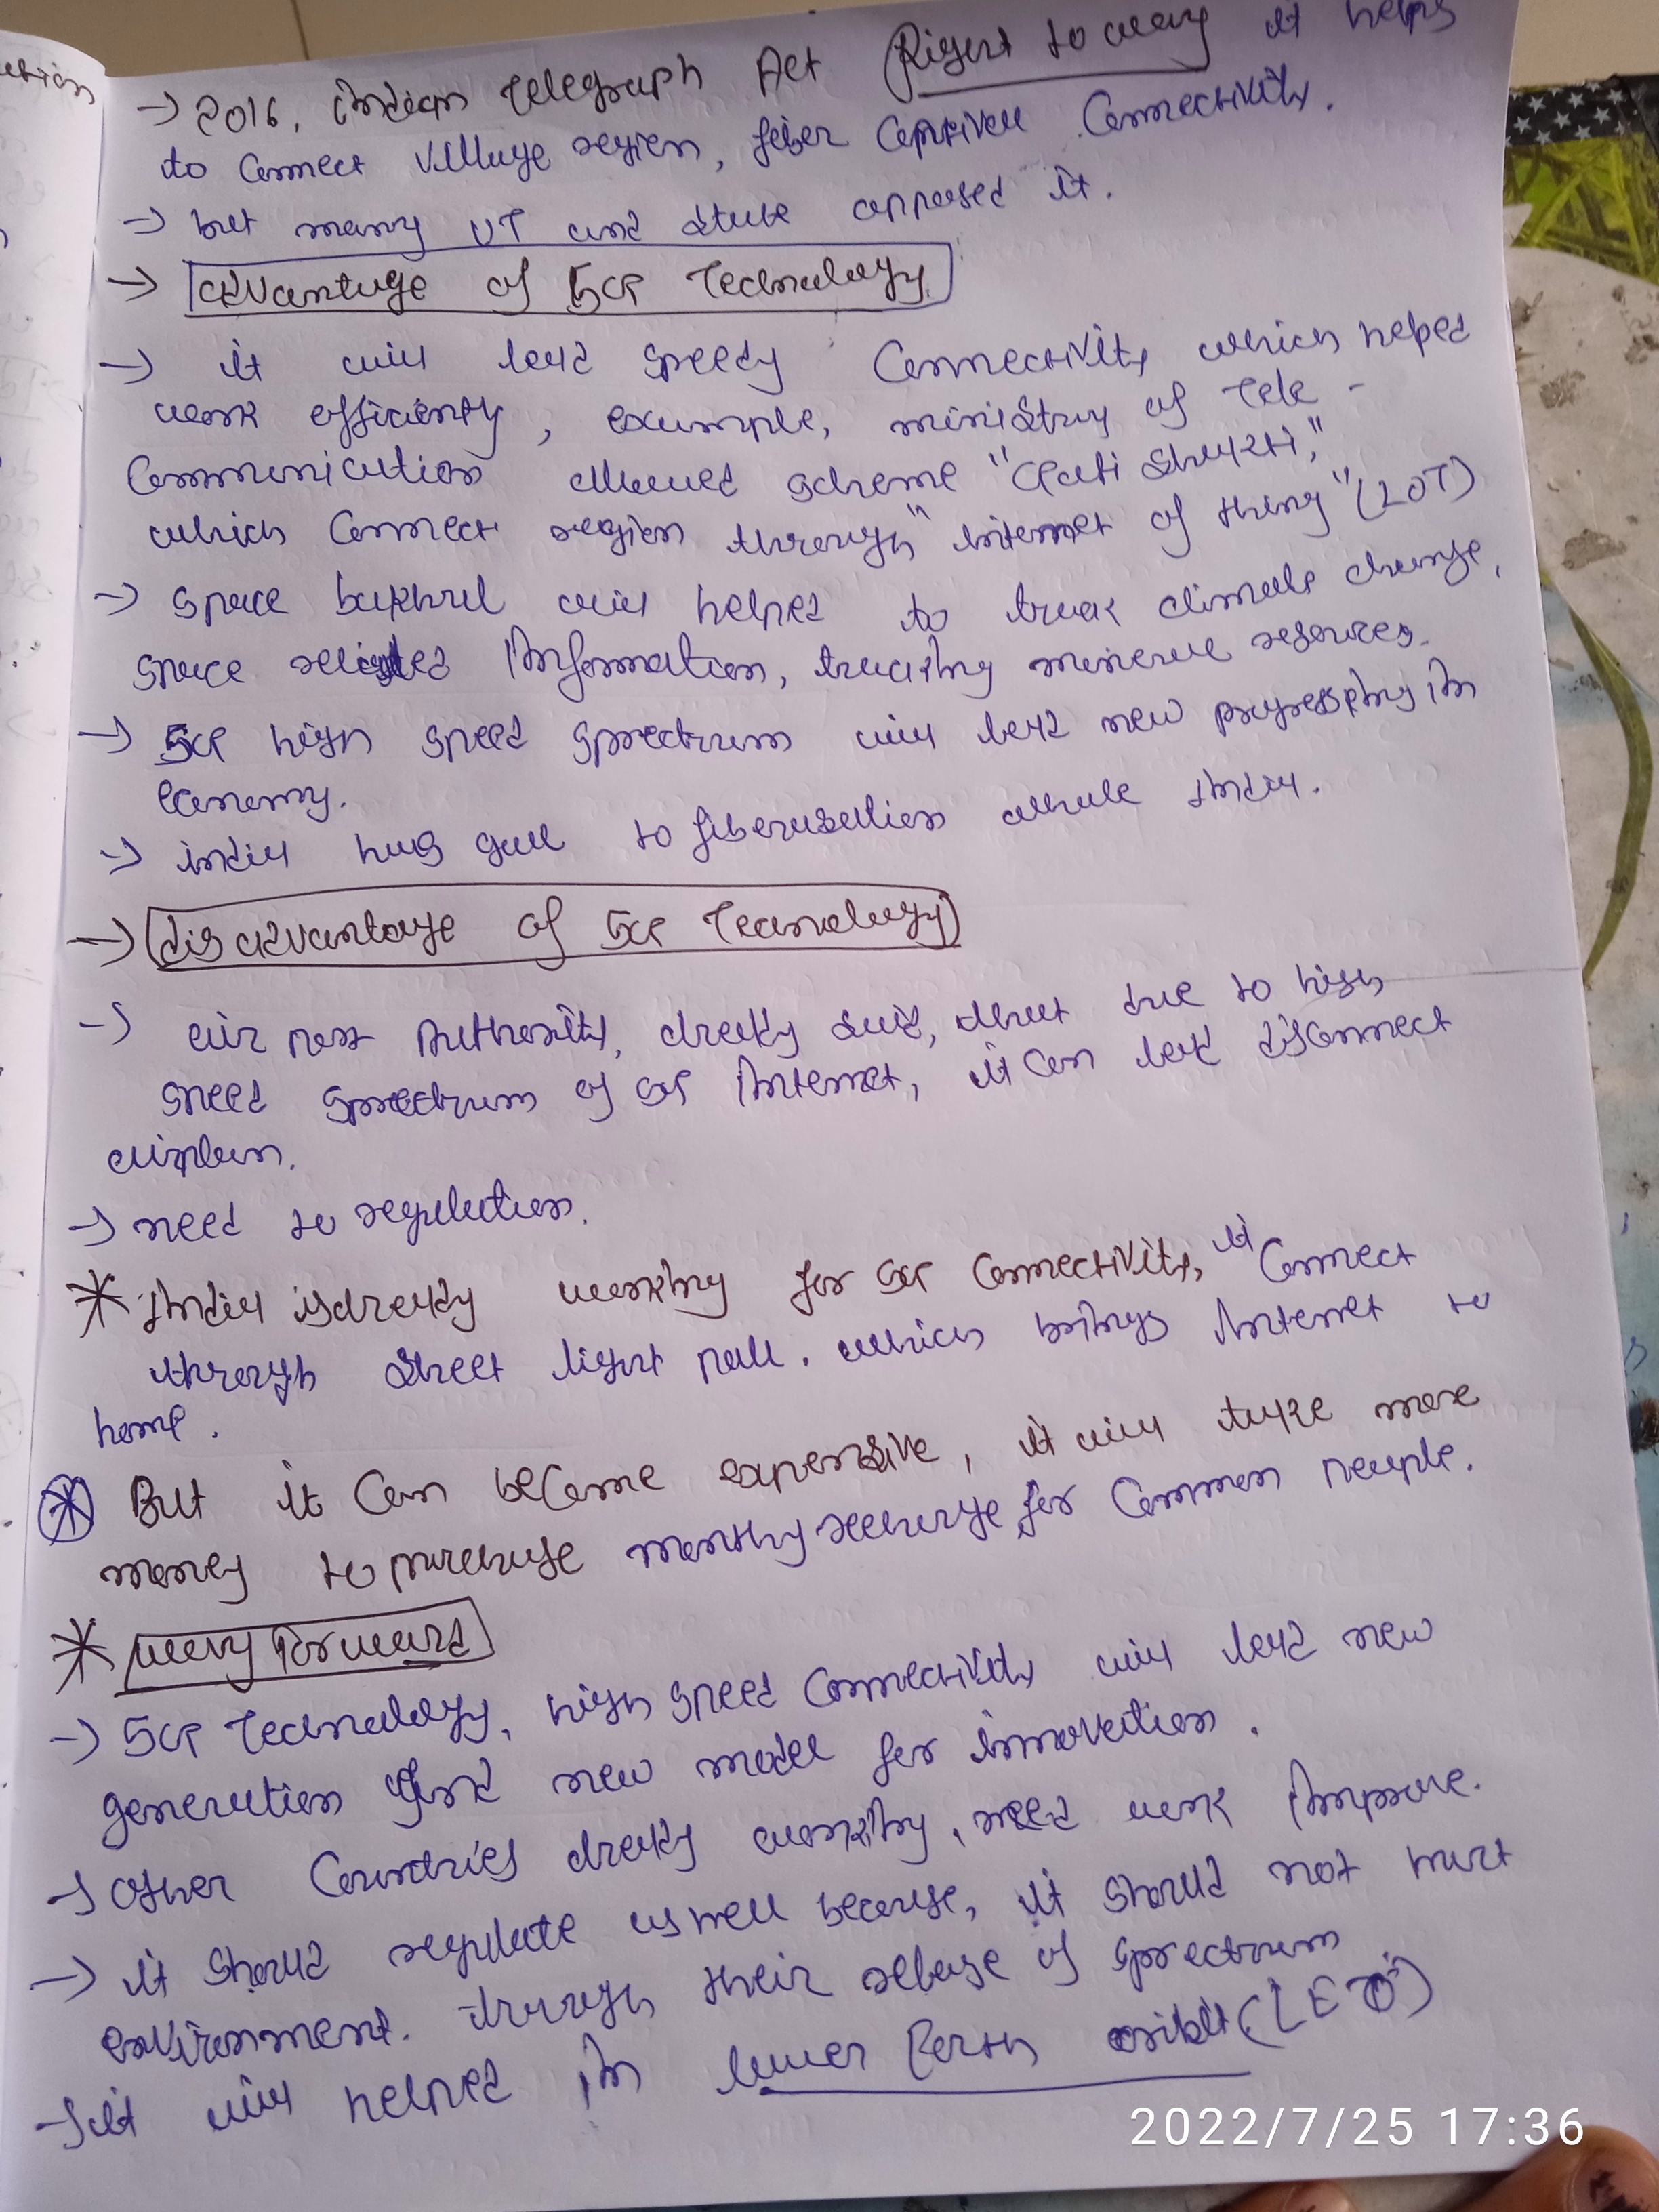 → 2016, Indian Telegraph Act Right to way it helps
to connect village region, fiber captive connectivity.
→ but many UT and state opposed it.
→ advantage of 5G Technology
→ it will lead speedy connectivity which helped
work efficienty, example, ministry of Tele -
communication allowed scheme "Gati Shakti,"
which connect region through "internet of thing" (IOT)
→ space will helped to track climate change,
space related information, tracking minerve resources.
→ 5G high speed spectrum will lead new progressing in
economy.
→ india has goal to fiberisation whole India.
→ disadvantage of 5G Technology
→ air port Authority, already said, that due to high
speed spectrum of 5G internet, it can lead disconnect
airplan.
→ need to regulation.
* India is already working for 5G connectivity, it connect
through street light pole. which brings internet to
home.
* But it can become expensive, it will take more
money to purchase monthly recharge for common people.
* way forward
→ 5G technology, high speed connectivity will lead new
generation and new model for innovation.
→ other countries already working, need work improve.
→ it should regulate as well because, it should not hurt
environment. through their release of spectrum
→ it will helped in lower Earth oribit (LEO)
2022/7/25 17:36